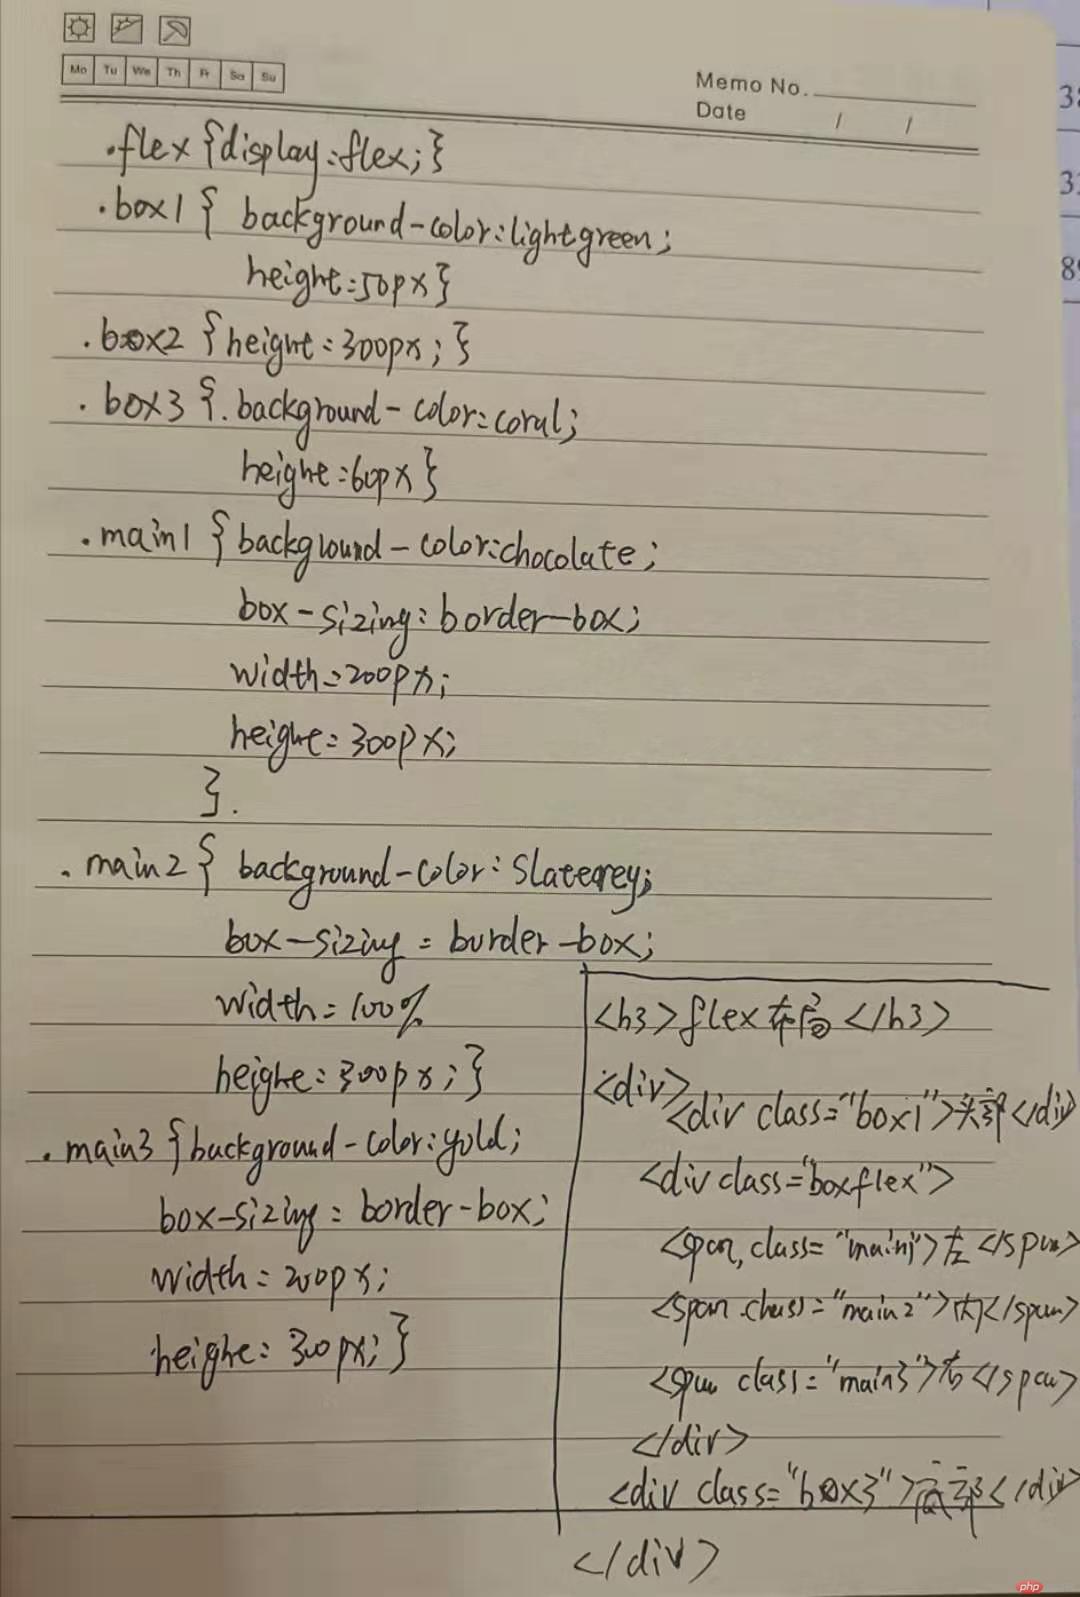 Mo Tu We Th Fr Sa Su
Memo No.
Date / /
.flex {display:flex;}
.box1 { background-color:lightgreen;
height:50px}
.box2 {height:300px;}
.box3 {.background-color:coral;
height:60px}
.main1 {background-color:chocolate;
box-sizing:border-box;
width:200px;
height:300px;
}.
.main2 { background-color:Slategrey;
box-sizing:border-box;
width:100%
height:300px;}
.main3 {background-color:gold;
box-sizing:border-box;
width:200px;
height:300px;}
<h3>flex布局</h3>
<div>
<div class="box1">头部</div
<div class="box flex">
<span class="main1">左</span>
<span class="main2">内</span>
<span class="main3">右</span>
</div>
<div class="box3">底部</div
</div>
38
33
89
php